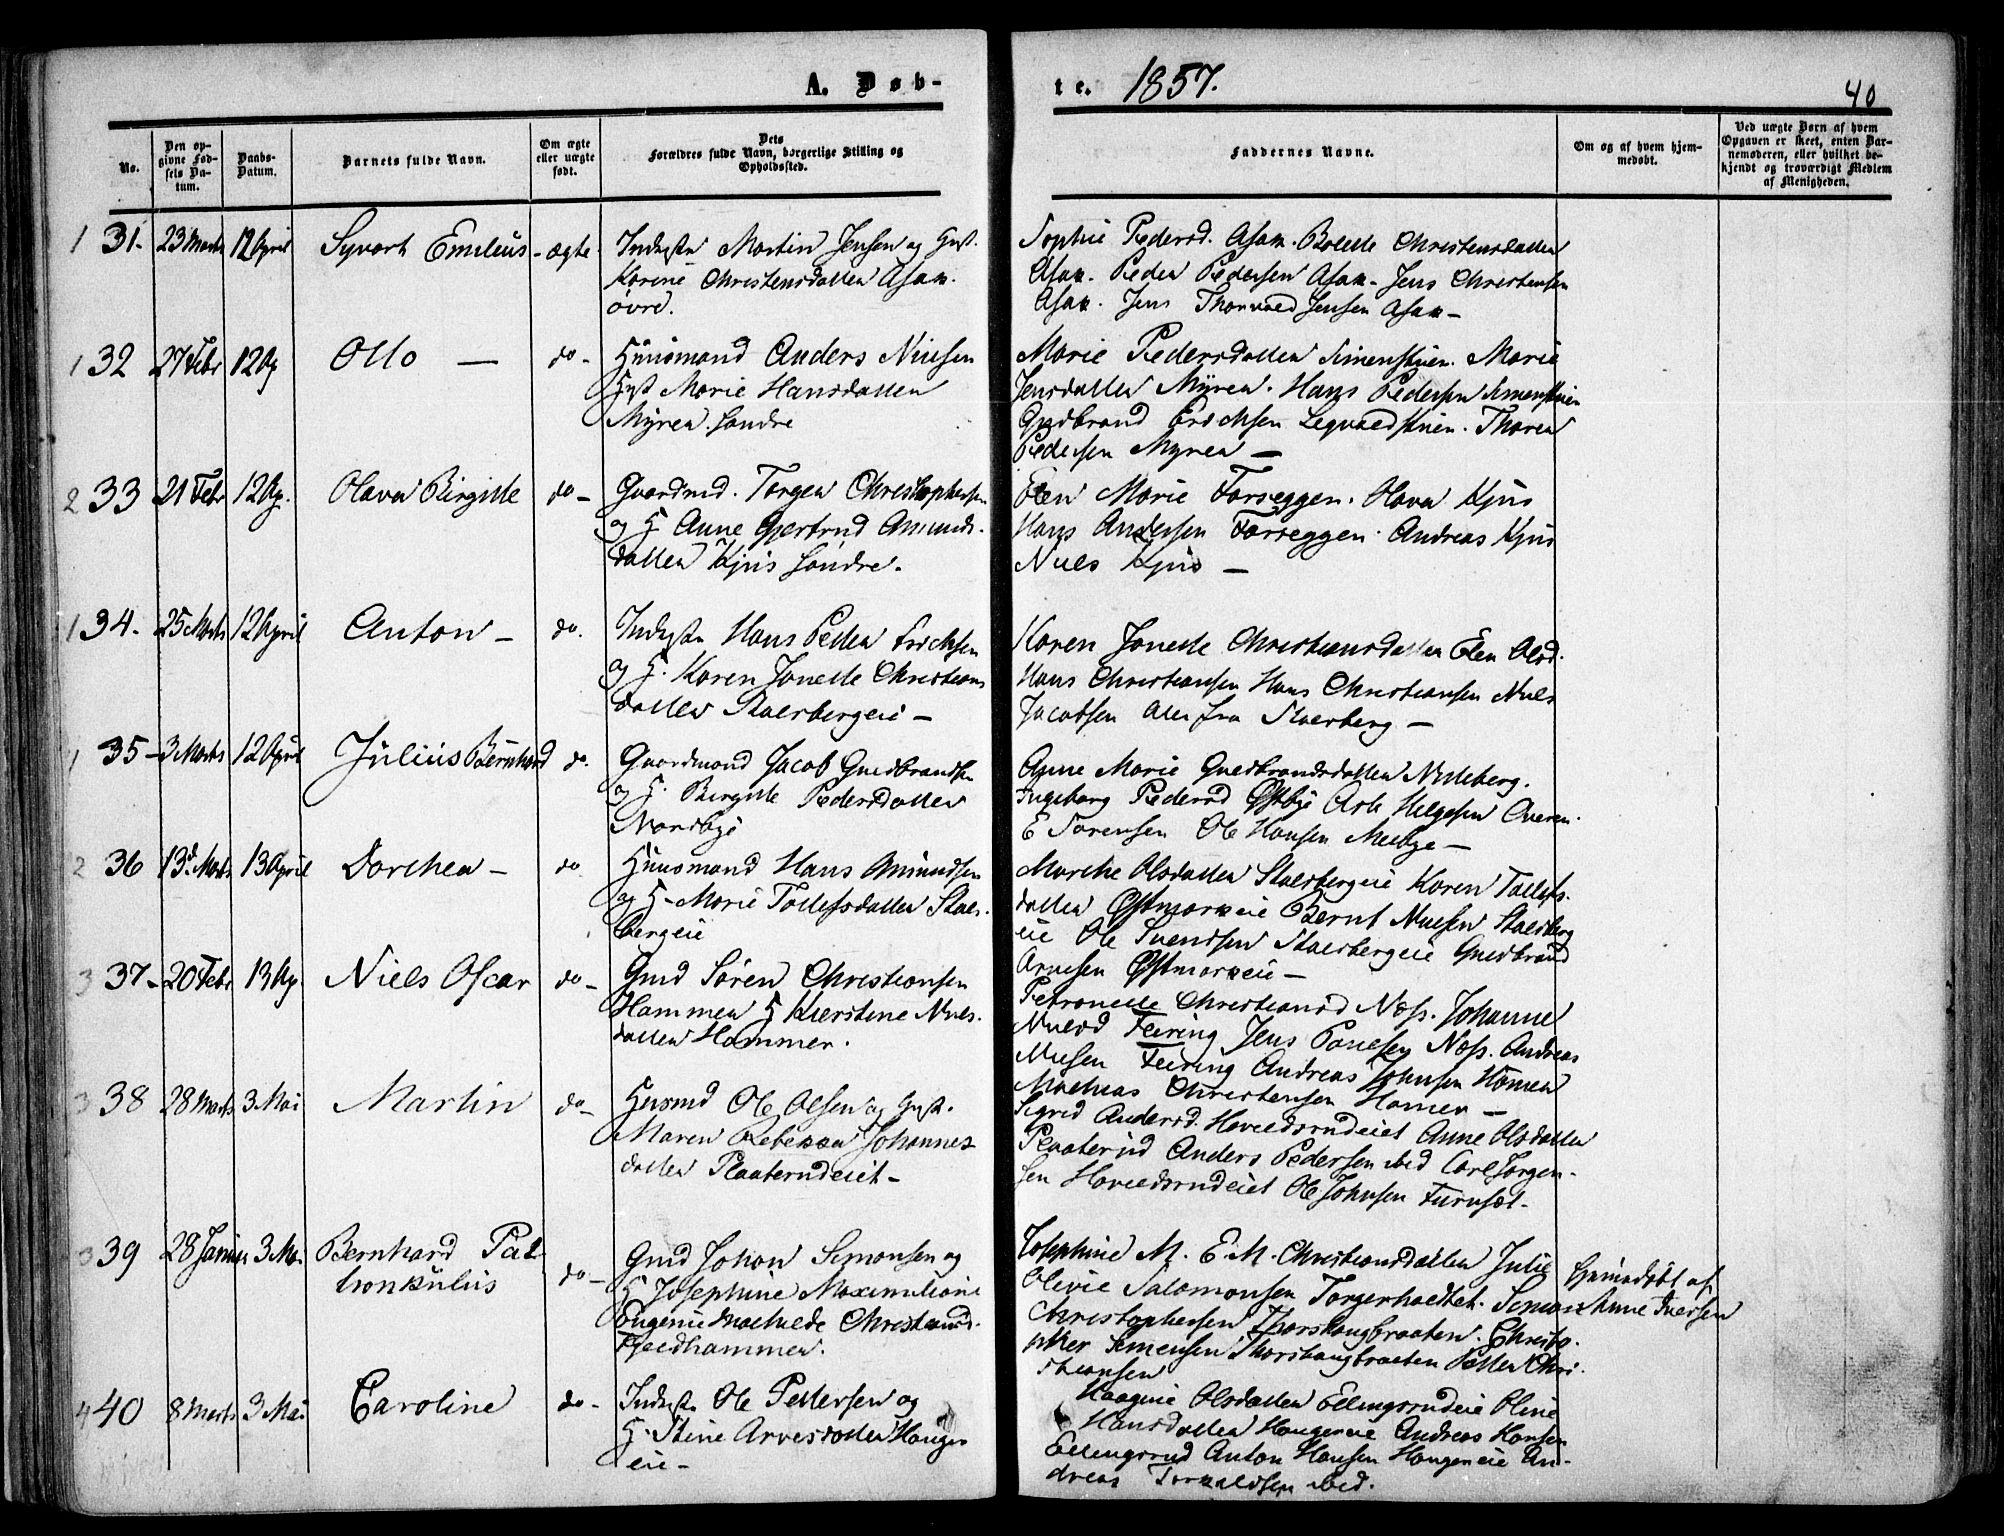 A. Døb-
te. 1857.
40
No.
Den op-
givne Fød-
sels Da-
tum.
Daabs-
Datum.
Barnets fulde Navn.
Om ægte
eller uægte
født.
Dets
Forældres fulde Navn, borgerlige Stilling og
Opholdssted.
Faddernes Navne.
Om og af hvem hjem-
medøbt.
Ved uægte Børn af hvem
Opgaven er skeet, enten Bar-
nemoderen, eller hvilket be-
kjendt og troværdigt Medlem
af Menigheden.
1 31. 23 Marts 12 April Syvart Emilius - ægte. Inderste Martin Jensen og Gust.
Karine Christensdatter Asak
övre.
Sophie Pedersd. Asak. Bolette Christensdatter
Asak. Peder Pedersen Asak. Jens Christensen
Asak. Jens Thorvald Jensen Asak -
1 32 27 Febr 12 Ap Otto - do - Huusmand Anders Nielsen
Gust Marie Hansdatter
Myrer söndre
Marie Pedersdatter Simenstuen. Marie
Jensdatter Myrer. Hans Pedersen Simenstuen
Gudbrand Erichsen Legvoldstuen. Thorer
Pedersen Myrer -
2 33 21 Febr 12 Ap. Olava Birgitte do - Gaardmd. Torger Christophersen
og H. Anne Gjertrud Amunds-
datter Kjus Söndre.
Elen Marie Forseggen. Olava Kjus
Hans Andersen Forseggen. Andreas Kjus
Niels Kjus -
1 34. 25 Marts 12 April Anton - do. Inderste Hans Peder Erichsen
og H. Karen Jonette Christians
datter Stalsbergeie -
Karen Jonette Christiansdatter Elen Olsd.
Hans Christiansen Hans Christiansen Niels
Jacobsen Alle fra Stalsberg -
1 35 - 3 Marts 12 April Julius Bernhard do. Gaardmand Jacob Gudbrandsen
og H. Birgitte Pedersdatter
Nordbye
Anne Marie Gudbrandsdatter Nitteberg.
Ingeborg Pedersd Østbye Asle Helgesen Aaeren.
E Sorensen Ole Hansen Melbye -
2 36 13d. Marts 13 April Dorthea - do Huusmand Hans Amundsen
og H - Marie Tollefsdatter Stals-
bergeie
Marthe Olsdatter Stalsbergeie Karen Tollefs-
datter Østmorkeie Bernt Nielsen Stalsberg
eie Ole Svendsen Stalsbergeie Gudbrand
Arnesen Østmorkeie -
3 37 - 20 Febr 13 Ap. Niels Oscar do - Gmd Sören Christiansen
Hammer H Kierstine Niels-
datter Hammer.
Petronelle Christiansd Næss. Johanne
Nielsd Feiring Jens Paulsen Næss. Andreas
Nielsen Feiring Andreas Johnsen Hamer
Mathias Christensen Hamer -
3 38 28 Marts 3 Mai Martin do - Husmd Ole Olsen og Gust.
Maren Rebekka Johannes
datter Plaaterudeiet -
Sigrid Andersd. Hovelsrudeiet Anne Olsdatter
Plaaterud Anders Pedersen ibid Carl Jorgen-
sen Hovelsrudeiet Ole Johnsen Furuset.
3 39 28 Januar 3 Mai Bernhard Pat
tronkulus
do - Gmd Johan Simonsen og
H Josephine Maximiliane
Eugenie Mathilde Christiansd.
Fjeldhammer.
Josephine M. E. M. Christiansdatter Julie
Olivie Salomonsen Torgerholtet. Simon
Christophersen Thorshaugbraaten. Christo-
pher Simensen Thorshaugbraaten Petter Chri-
stiansen
Hjemmedøbt af
Anne Iversen
4 40 8 Marts 3 Mai Caroline do - Inderste Ole Pettersen og
H. Stine Arvesdatter Haugen
eie -
Haagine Olsdatter Ellingsrudeie Oline
Hansdatter Haugeneie Andreas Hansen
Ellingsrud Anton Hansen Haugeneie An-
dreas Torkildsen ibid.